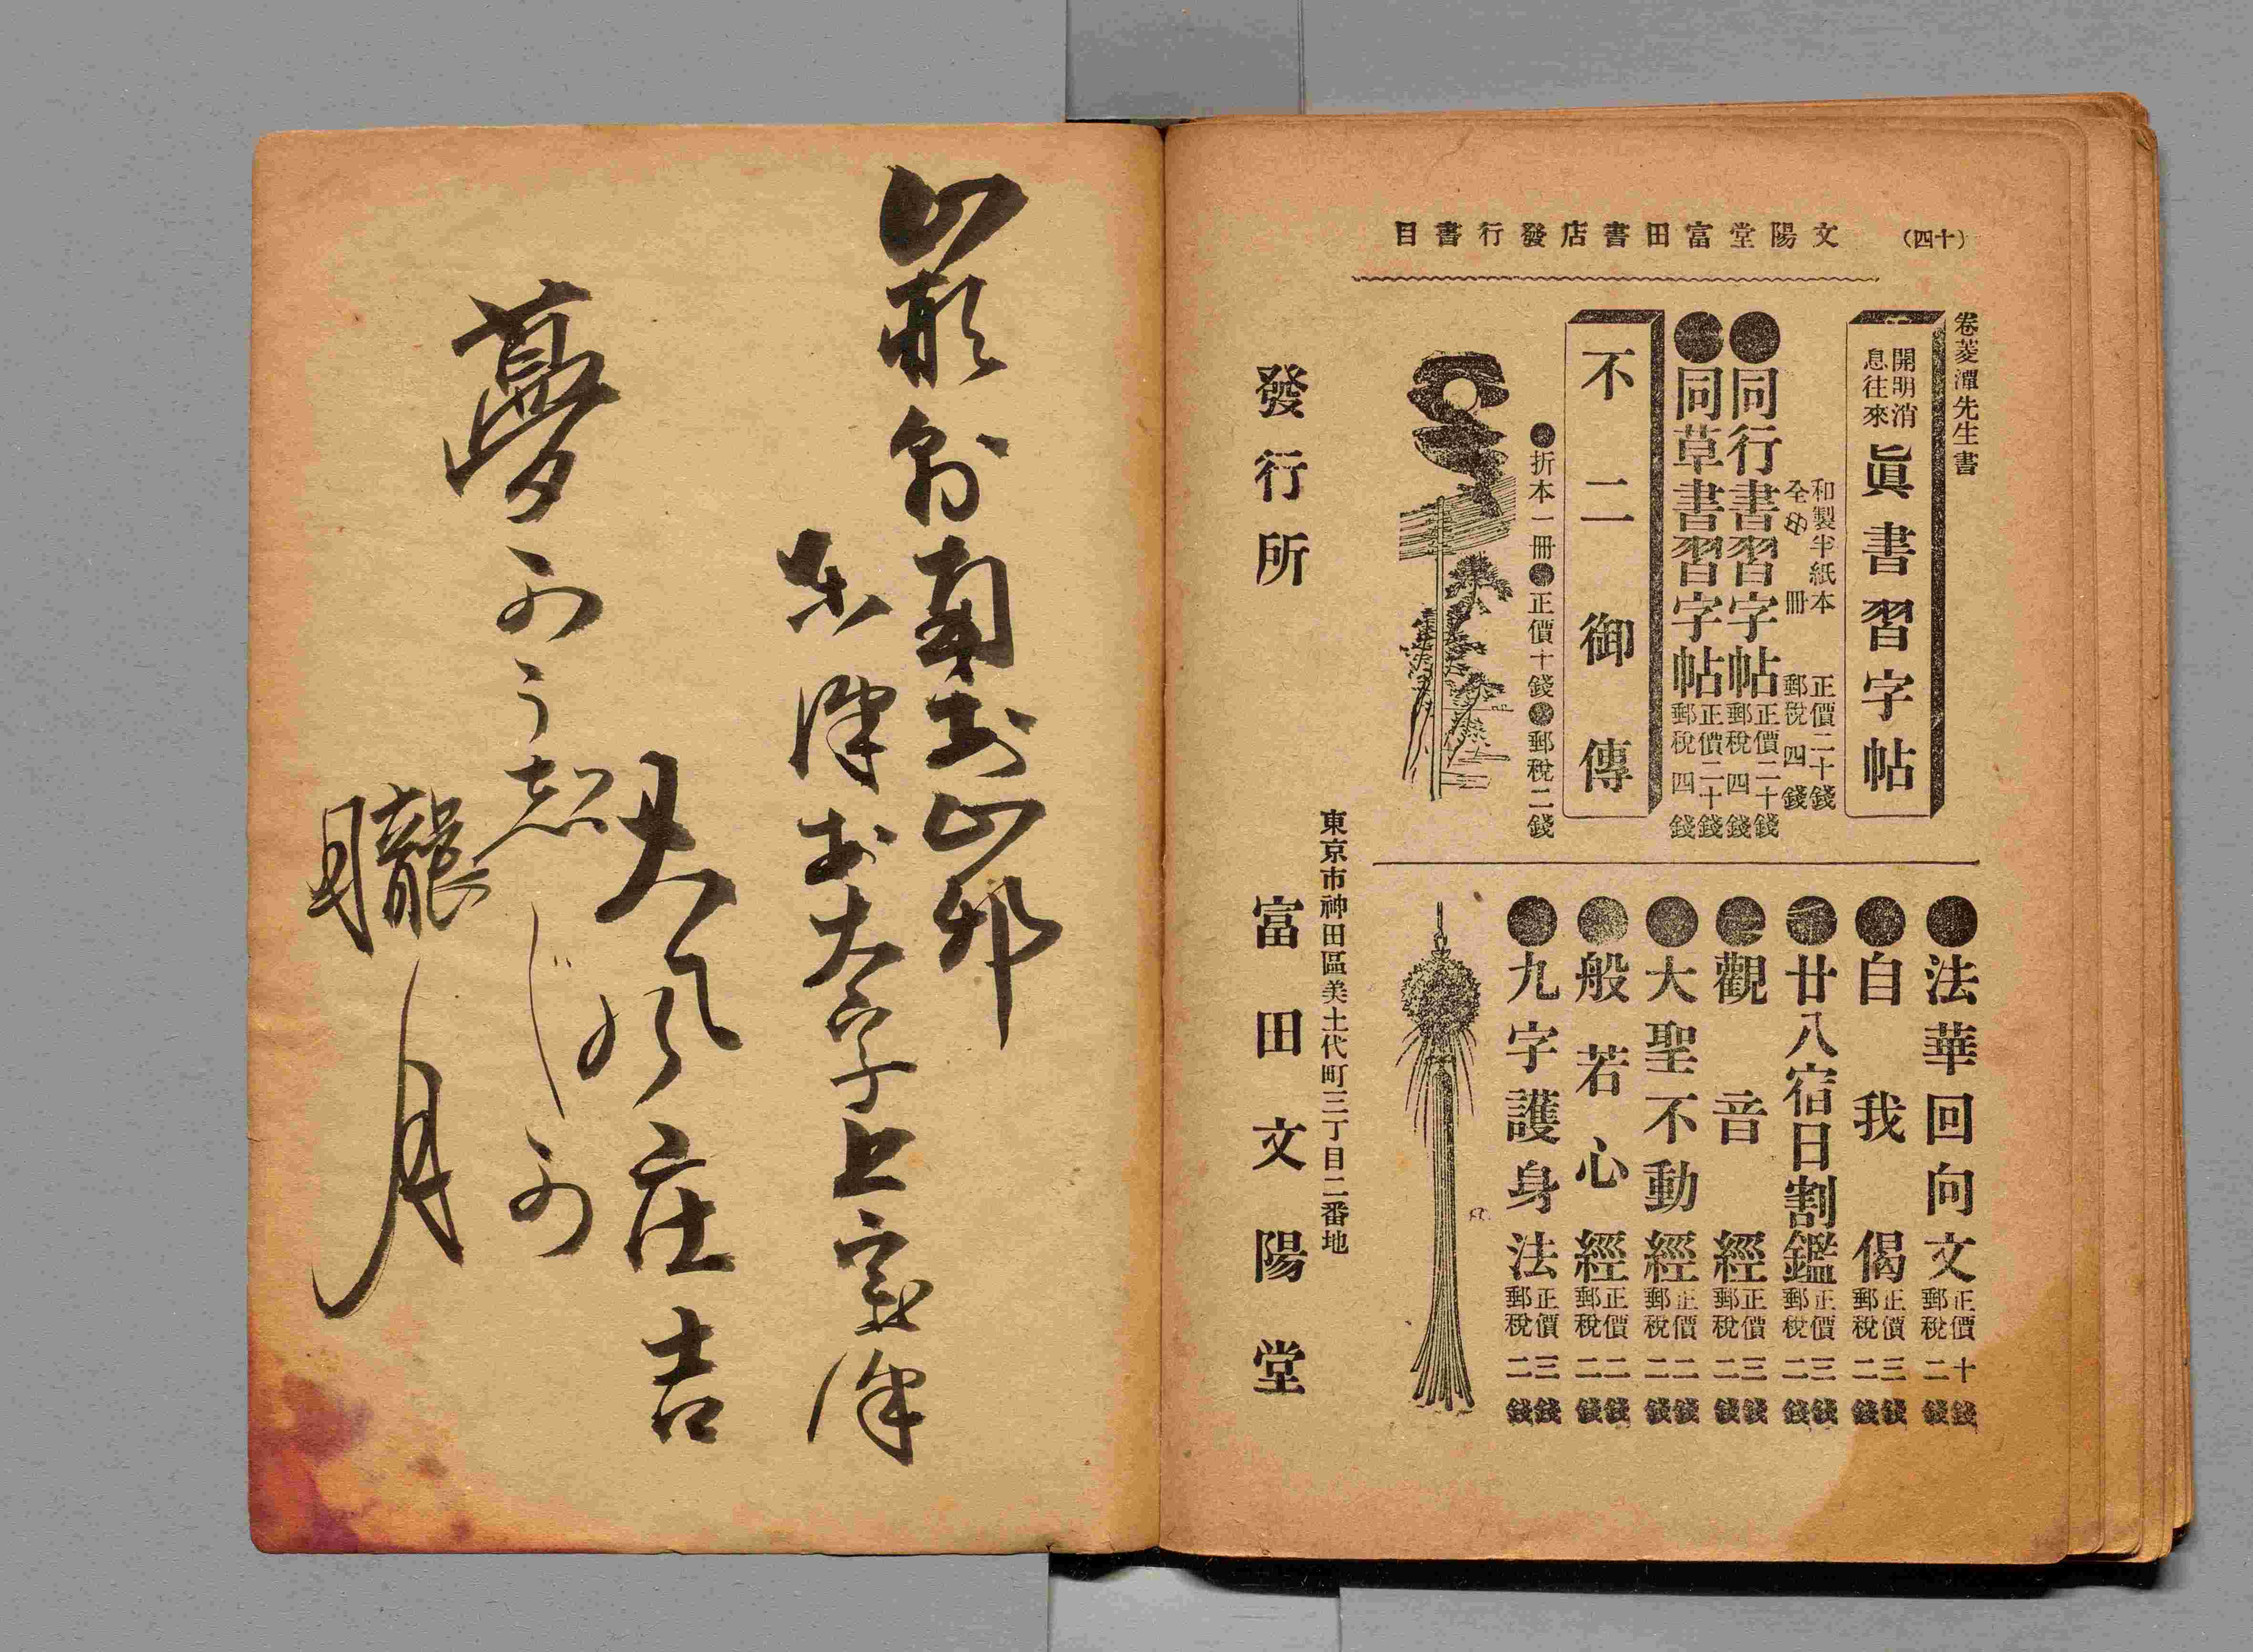 （十四）
文陽堂富田書店發行書目
卷菱潭先生書
開明消息往來 眞書習字帖
和製半紙本 正價二十錢
全一冊 郵稅四錢
●同行書習字帖 正價二十錢 郵稅四錢
●同草書習字帖 正價二十錢 郵稅四錢
不二御傳
●折本一冊●正價十錢●郵稅二錢
●法華回向文 正價十錢 郵稅二錢
●自我偈 正價三錢 郵稅二錢
●廿八宿日割鑑 正價三錢 郵稅二錢
●觀音經 正價三錢 郵稅二錢
●大聖不動經 正價二錢 郵稅二錢
●般若心經 正價二錢 郵稅二錢
●九字護身法 正價三錢 郵稅二錢
東京市神田區美土代町三丁目二番地
發行所 富田文陽堂
山形縣南村山郡
東澤村大字上宝澤
大風庄吉
夢のう
朧月